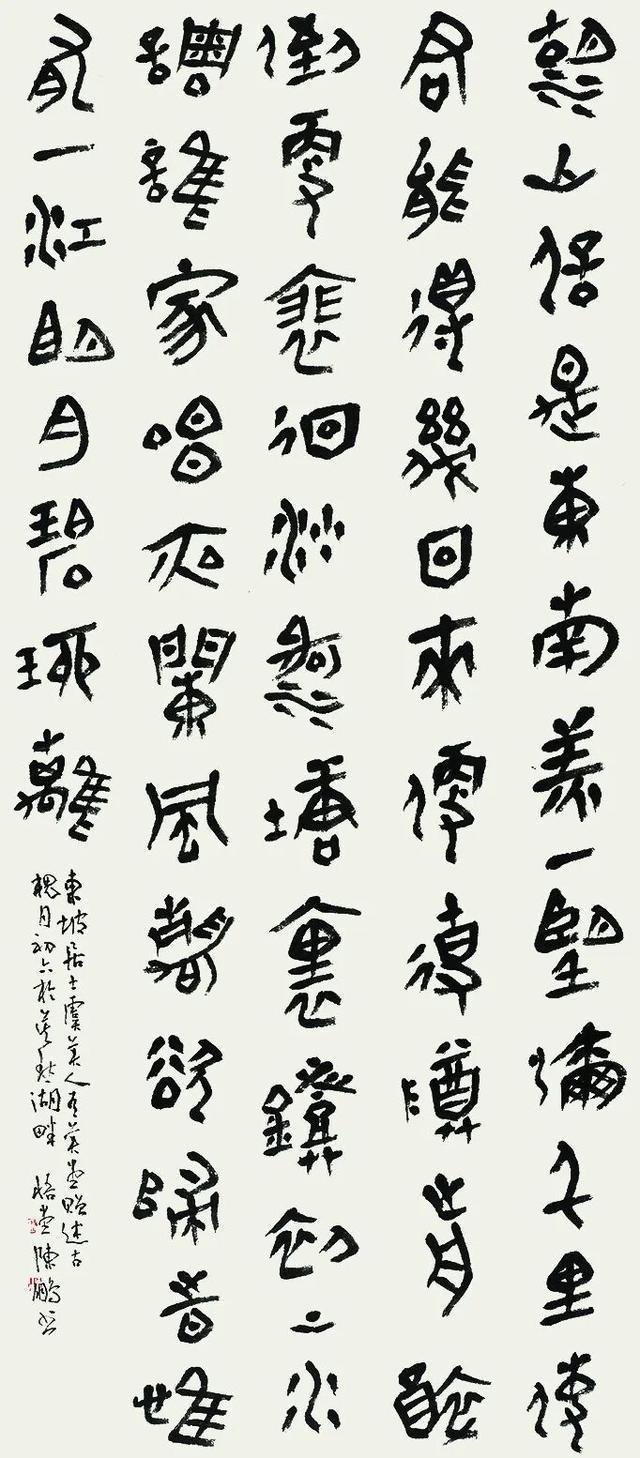 湖山信是東南美一望瀰千里使
君能得幾回來便使樽前醉
倒更裴徊沙河塘裏鐙初上水
調誰家唱夜闌風靜欲歸時惟
有一江明月碧琉璃
東坡居士虞美人有美堂贈述古
槐月初六於莫愁湖畔 陳鵬書